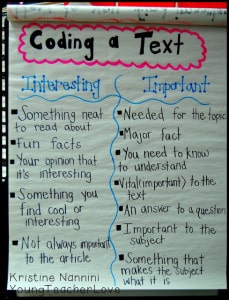 Coding a Text
Interesting
Something neat
to read about
Fun facts
Your opinion that
it's interesting
Something you
find cool or
interesting
Not always important
to the article
Important
Needed for the topic
Major fact
You need to know
to understand
Vital (important) to the
text
An answer to a question
Important to the
subject
Something that
makes the subject
what it is
Kristine Nannini
YoungTeacherLove